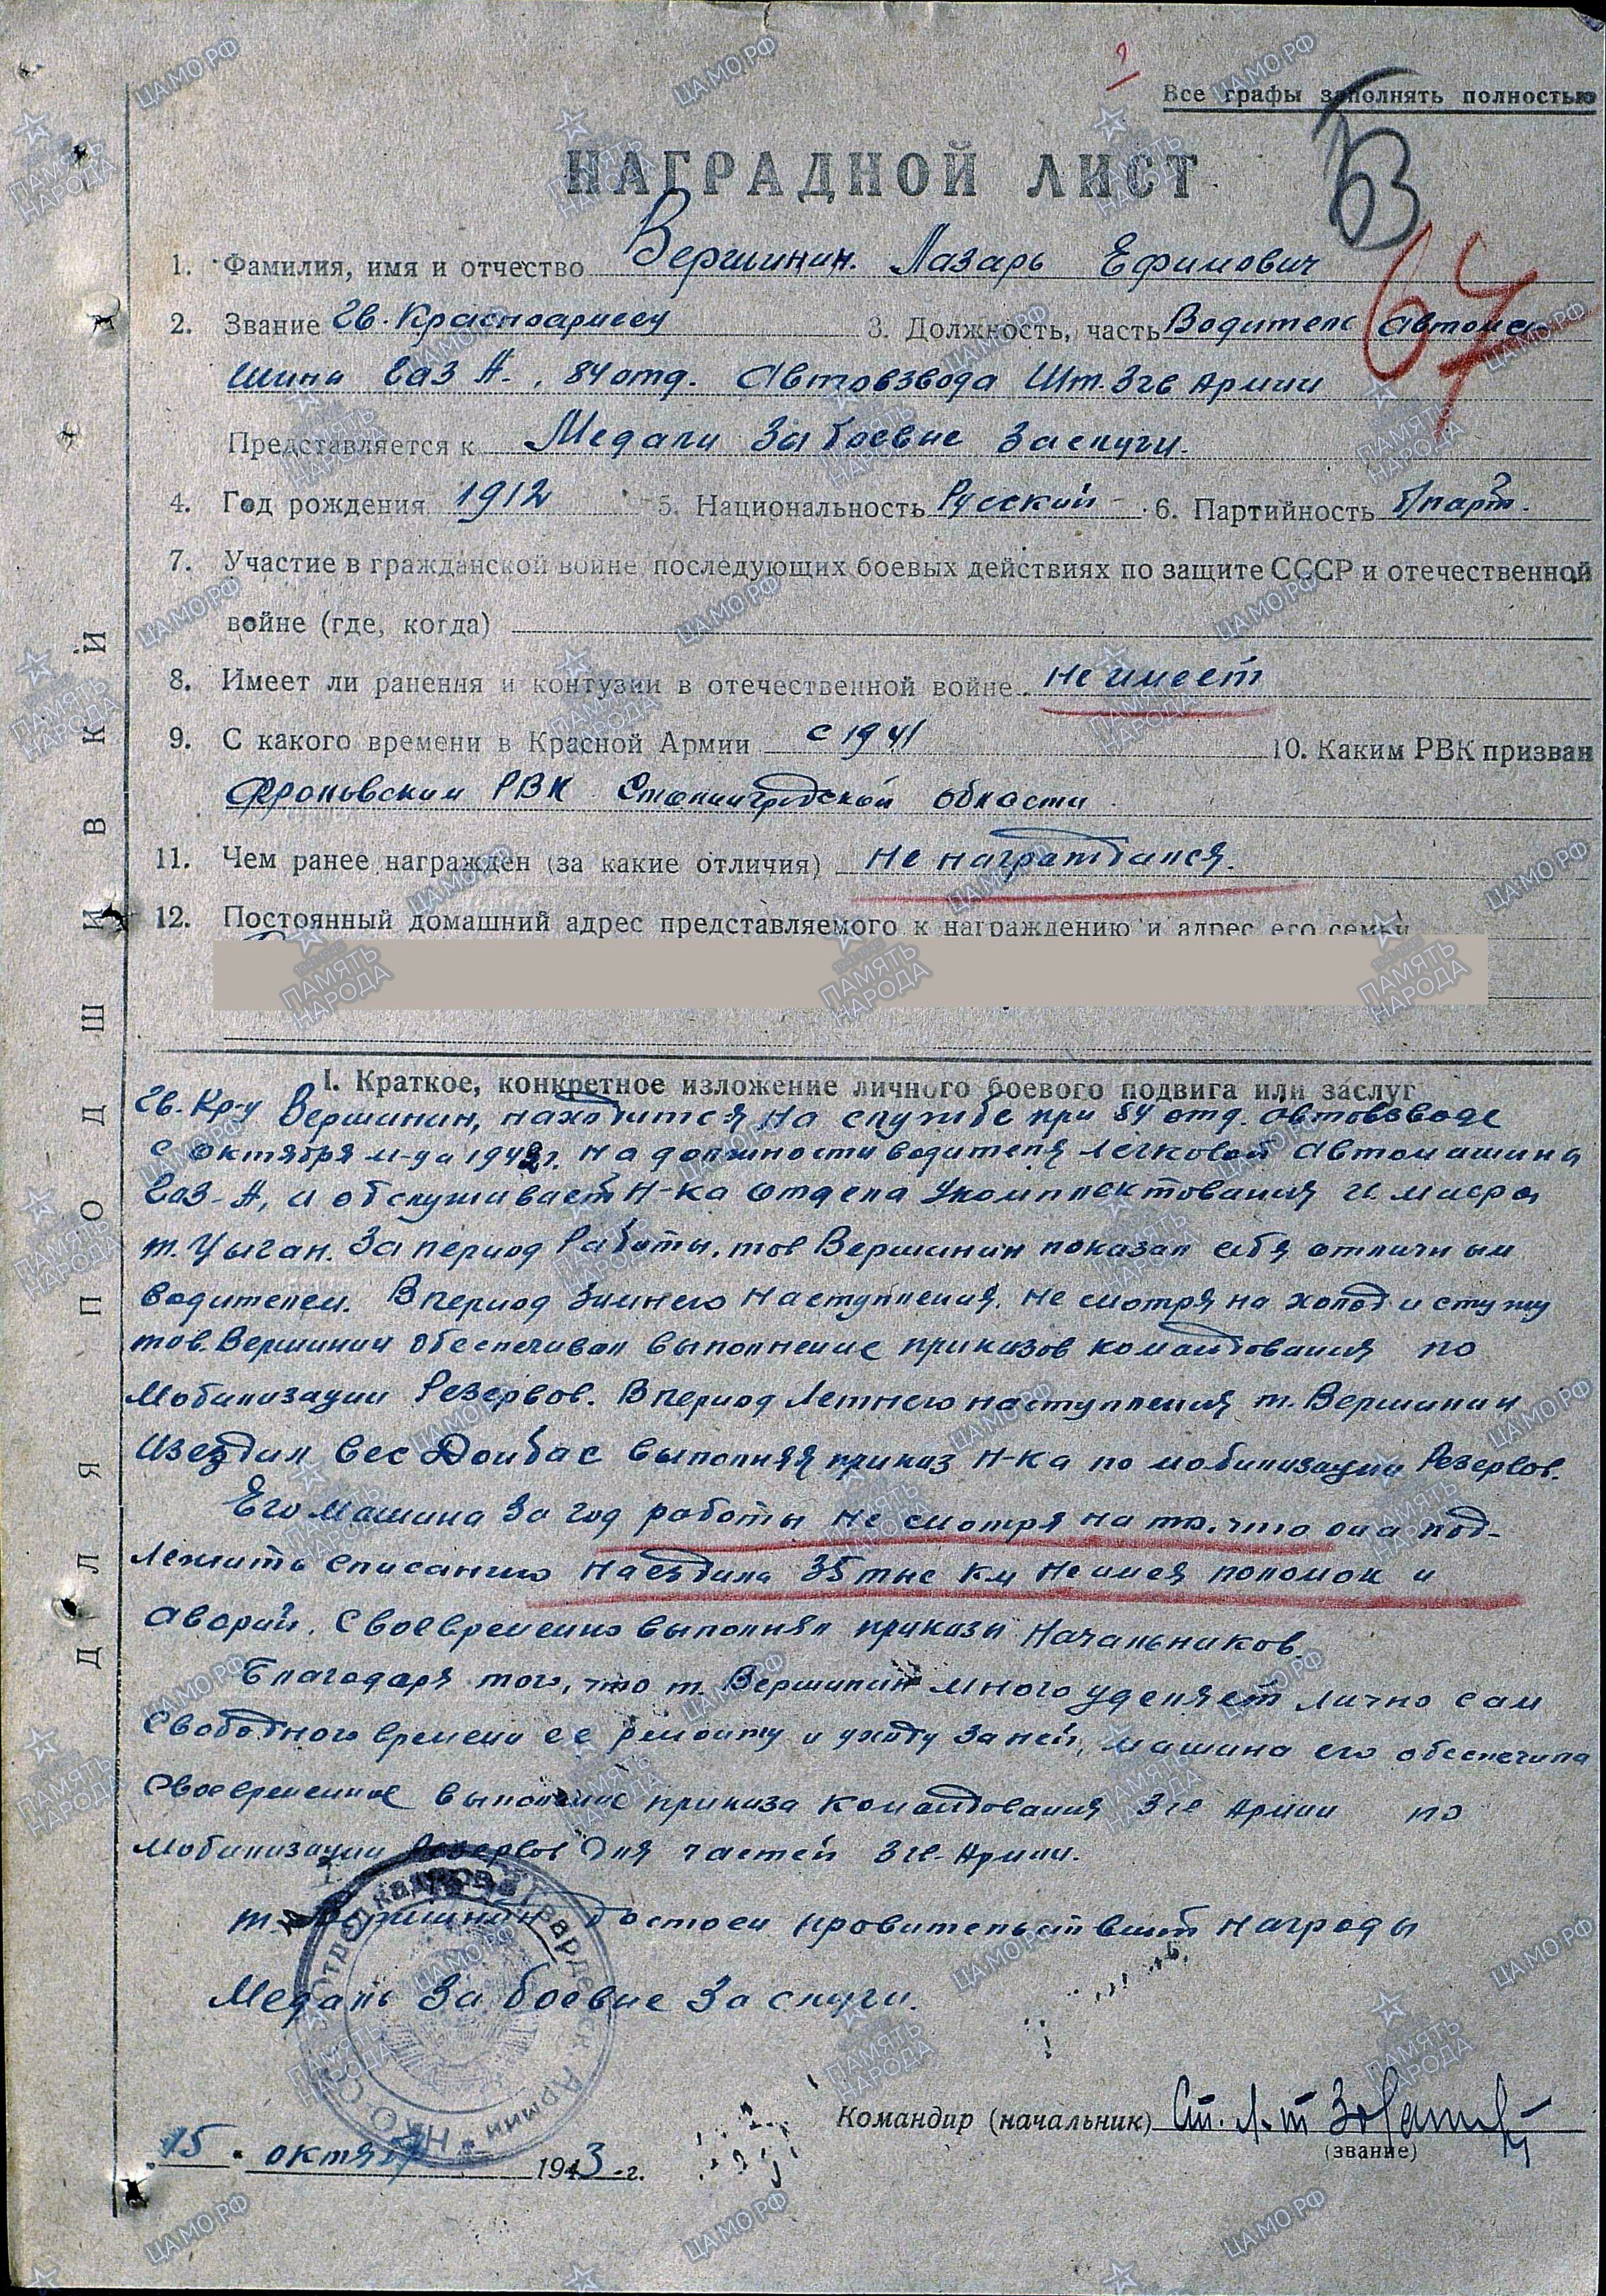 Все графы заполнять полностью
53
НАГРАДНОЙ ЛИСТ
67
1. Фамилия, имя и отчество Вершинин. Лазарь Ефимович
2. Звание Гв. Красноармеец 3. Должность, часть Водитель автома-
шины Газ А., 84 отд. Автовзвода Шт. 3 гв Армии
Представляется к Медали За боевые Заслуги.
4. Год рождения 1912 5. Национальность Русский 6. Партийность б/парт.
7. Участие в гражданской войне, последующих боевых действиях по защите СССР и отечественной
войне (где, когда)
8. Имеет ли ранения и контузии в отечественной войне не имеет
9. С какого времени в Красной Армии с 1941 10. Каким РВК призван
Фроловским РВК Сталинградской области
11. Чем ранее награжден (за какие отличия) Не награждался.
12. Постоянный домашний адрес представляемого к награждению и адрес его семьи
I. Краткое, конкретное изложение личного боевого подвига или заслуг
Гв. Кр-ц Вершинин, находится на службе при 84 отд. автовзводе
с октября м-ца 1942 г. на должности водителя легковой Автомашины
Газ-А, и обслуживает н-ка отдела Укомплектования г. маера
т. Цыган. За период Работы, тов Вершинин показал себя отличным
водителем. В период Зимнего Наступления, не смотря на холод и стужу
тов. Вершинин обеспечивал выполнение приказов командования по
Мобилизации Резервов. В период Летнего наступления т. Вершинин
Изездил вес Донбас выполняя приказ Н-ка по мобилизации Резервов.
Его машина За год работы не смотря на то, что она под-
лежить списанию наездила 35 тыс км не имея поломок и
аварий. Своевременно выполнял приказы Начальников.
Благодаря того, что т. Вершинин много уделяет лично сам
Свободного времени ее ремонту и уходу за ней, машина его обеспечила
Своевременное выполнение приказа командования 3 гв Армии по
Мобилизации Резервов для частей 3 гв. Армии.
т. Вершинин достоен правительствен награды
Медаль За боевые Заслуги.
Отдел кадров 3 Гвардейск Армии * НКО-СССР
Командир (начальник) Ст. л-т
(звание)
„15" октября 1943 г.
ДЛЯ ПОДШИВКИ
ПАМЯТЬ НАРОДА
ЦАМО.РФ